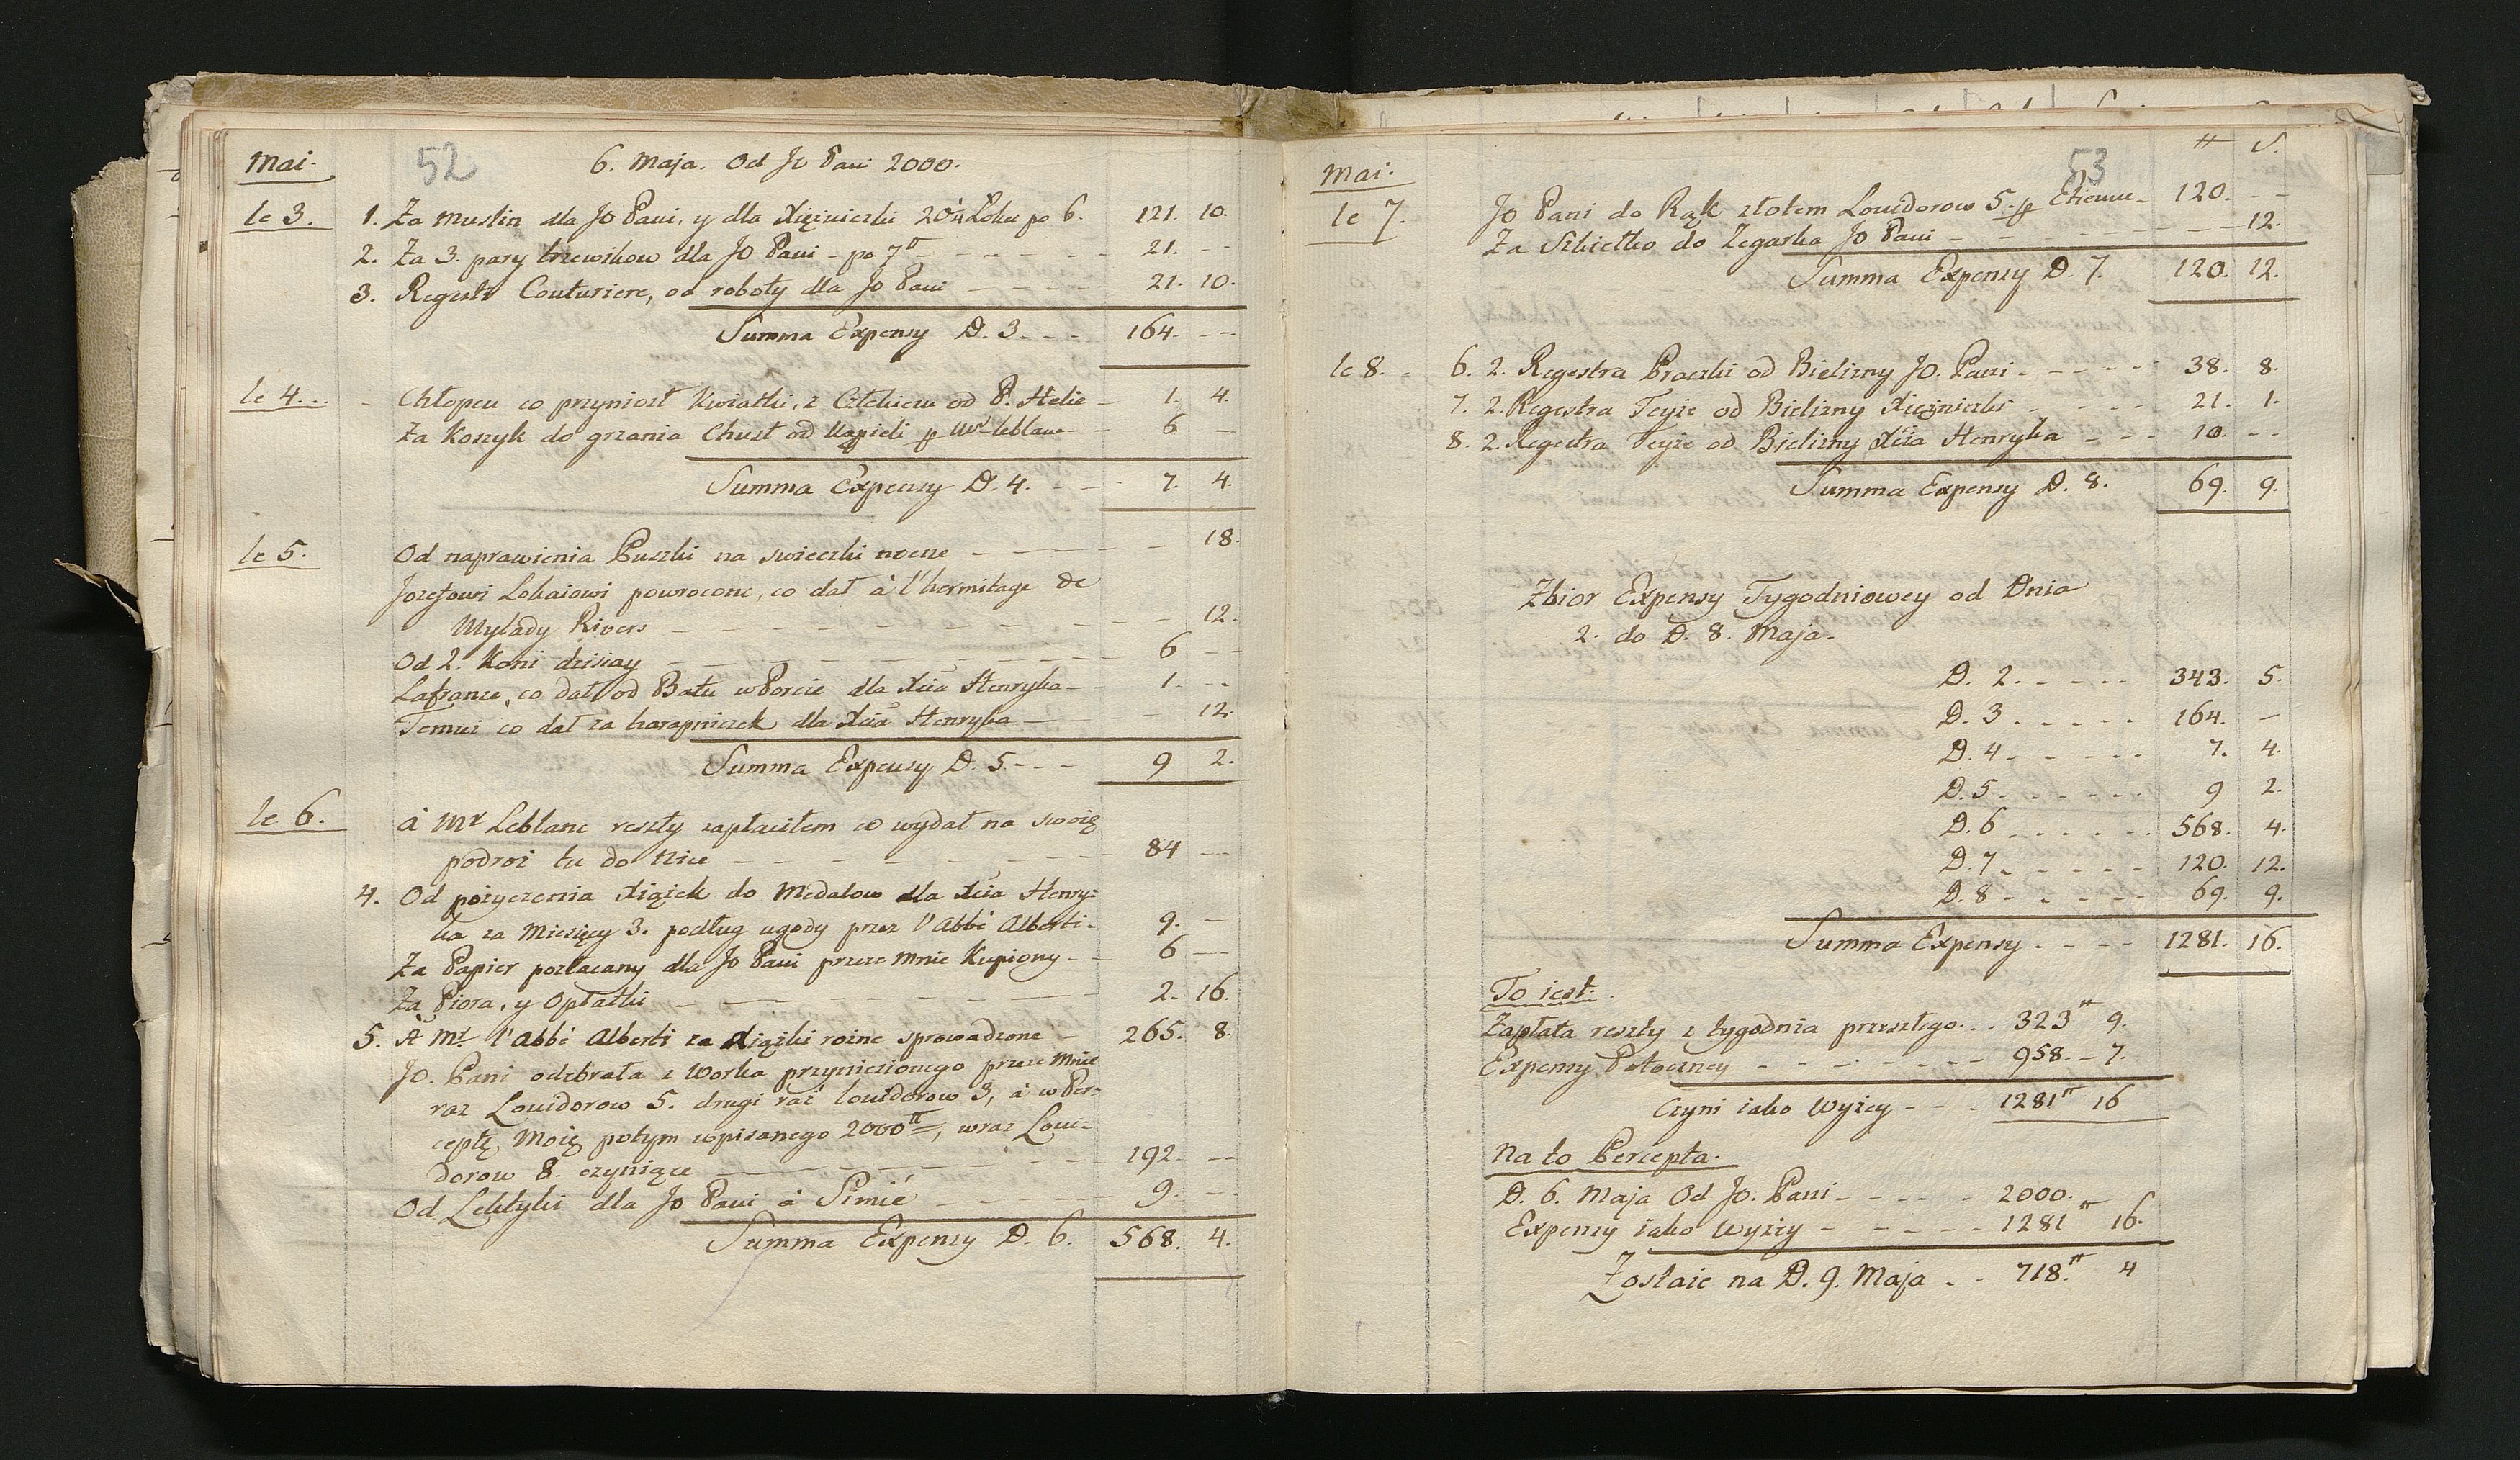 Mai. 52 6. Maja. Od Jo Pani 2000.
le 3. 1. Za Muslin dla Jo Pani, y dla Xiężniczki 20¼ Łokci po 6. 121. 10.
2. Za 3. pary trzewikow dla Jo Pani - po 7 ₶ 21. --
3. Regestr Couturiere, od roboty dla Jo Pani 21. 10.
Summa Expensy D. 3. 164. --
le 4. Chłopcu co przyniosł Kwiatki, z od P. Helie 1. 4.
Za Koszyk do grzania Chust od Kąpieli p Mr leblanc 6 --
Summa Expensy D. 4. 7. 4.
le 5. Od naprawienia Puszki na swieczki nocne 18.
Jozefowi Lokaiowi powrocone, co dał à l'hermitage de
Mylady Rivers 12.
Od 2. Koni dzisiay 6 --
Lafrance, co dał od Batu w Porcie dla Xcia Henryka 1. --
Temuż co dał za harapniczek dla Xcia Henryka 12.
Summa Expensy D. 5. 9 2.
le 6. à Mr Leblanc reszty zapłaciłem co wydał na swoię
podroż tu do Nice 84 --
4. Od pożyczenia Xiążek do Medalow dla Xcia Henry=
ka za Miesięcy 3. podług ugody przez l'Abbé Alberti. 9. --
Za Papier pozłacany dla Jo Pani przeze mnie Kupiony 6 --
Za Piora, y Opłatki 2. 16.
5. A Mr. l'Abbé Alberti za Xiążki rożne sprowadzone 265. 8.
Jo. Pani odebrała z Worka przyniesionego przeze Mnie
raz Louidorow 5. drugi raż louidorow 3, à w Per=
ceptę Moię potym wpisanego 2000 ₶, wraz Loui=
dorow 8. czyniące 192. --
Od Lektyki dla Jo Pani à Simié 9. --
Summa Expensy D. 6. 568. 4.
Mai. 53 ₶ S.
le 7. Jo Pani do Rąk złotem Louidorow 5. p Etienne 120. --
Za Szkiełko do Zegarka Jo Pani 12.
Summa Expensy D. 7. 120. 12.
le 8. 6. 2. Regestra Praczki od Bielizny Jo. Pani 38. 8.
7. 2. Regestra Teyże od Bielizny Xiężniczki 21. 1.
8. 2. Regestra Teyże od Bielizny Xcia Henryka 10. --
Summa Expensy D. 8. 69. 9.
Zbior Expensy Tygodniowey od Dnia
2. do D. 8. Maja.
D. 2. 343. 5.
D. 3. 164. -
D. 4 7. 4.
D. 5 9 2.
D. 6 568. 4.
D. 7 120. 12.
D. 8 69. 9.
Summa Expensy 1281. 16.
To iest.
Zapłata reszty z tygodnia przeszłego 323 ₶ 9.
Expensy Potoczney 958. - 7.
Czyni iako Wyżey 1281 ₶ 16
Na to Percepta.
D. 6. Maja Od Jo. Pani 2000.
Expensy iako Wyżey 1281 ₶ 16.
Zostaie na D. 9. Maja 718. ₶ 4